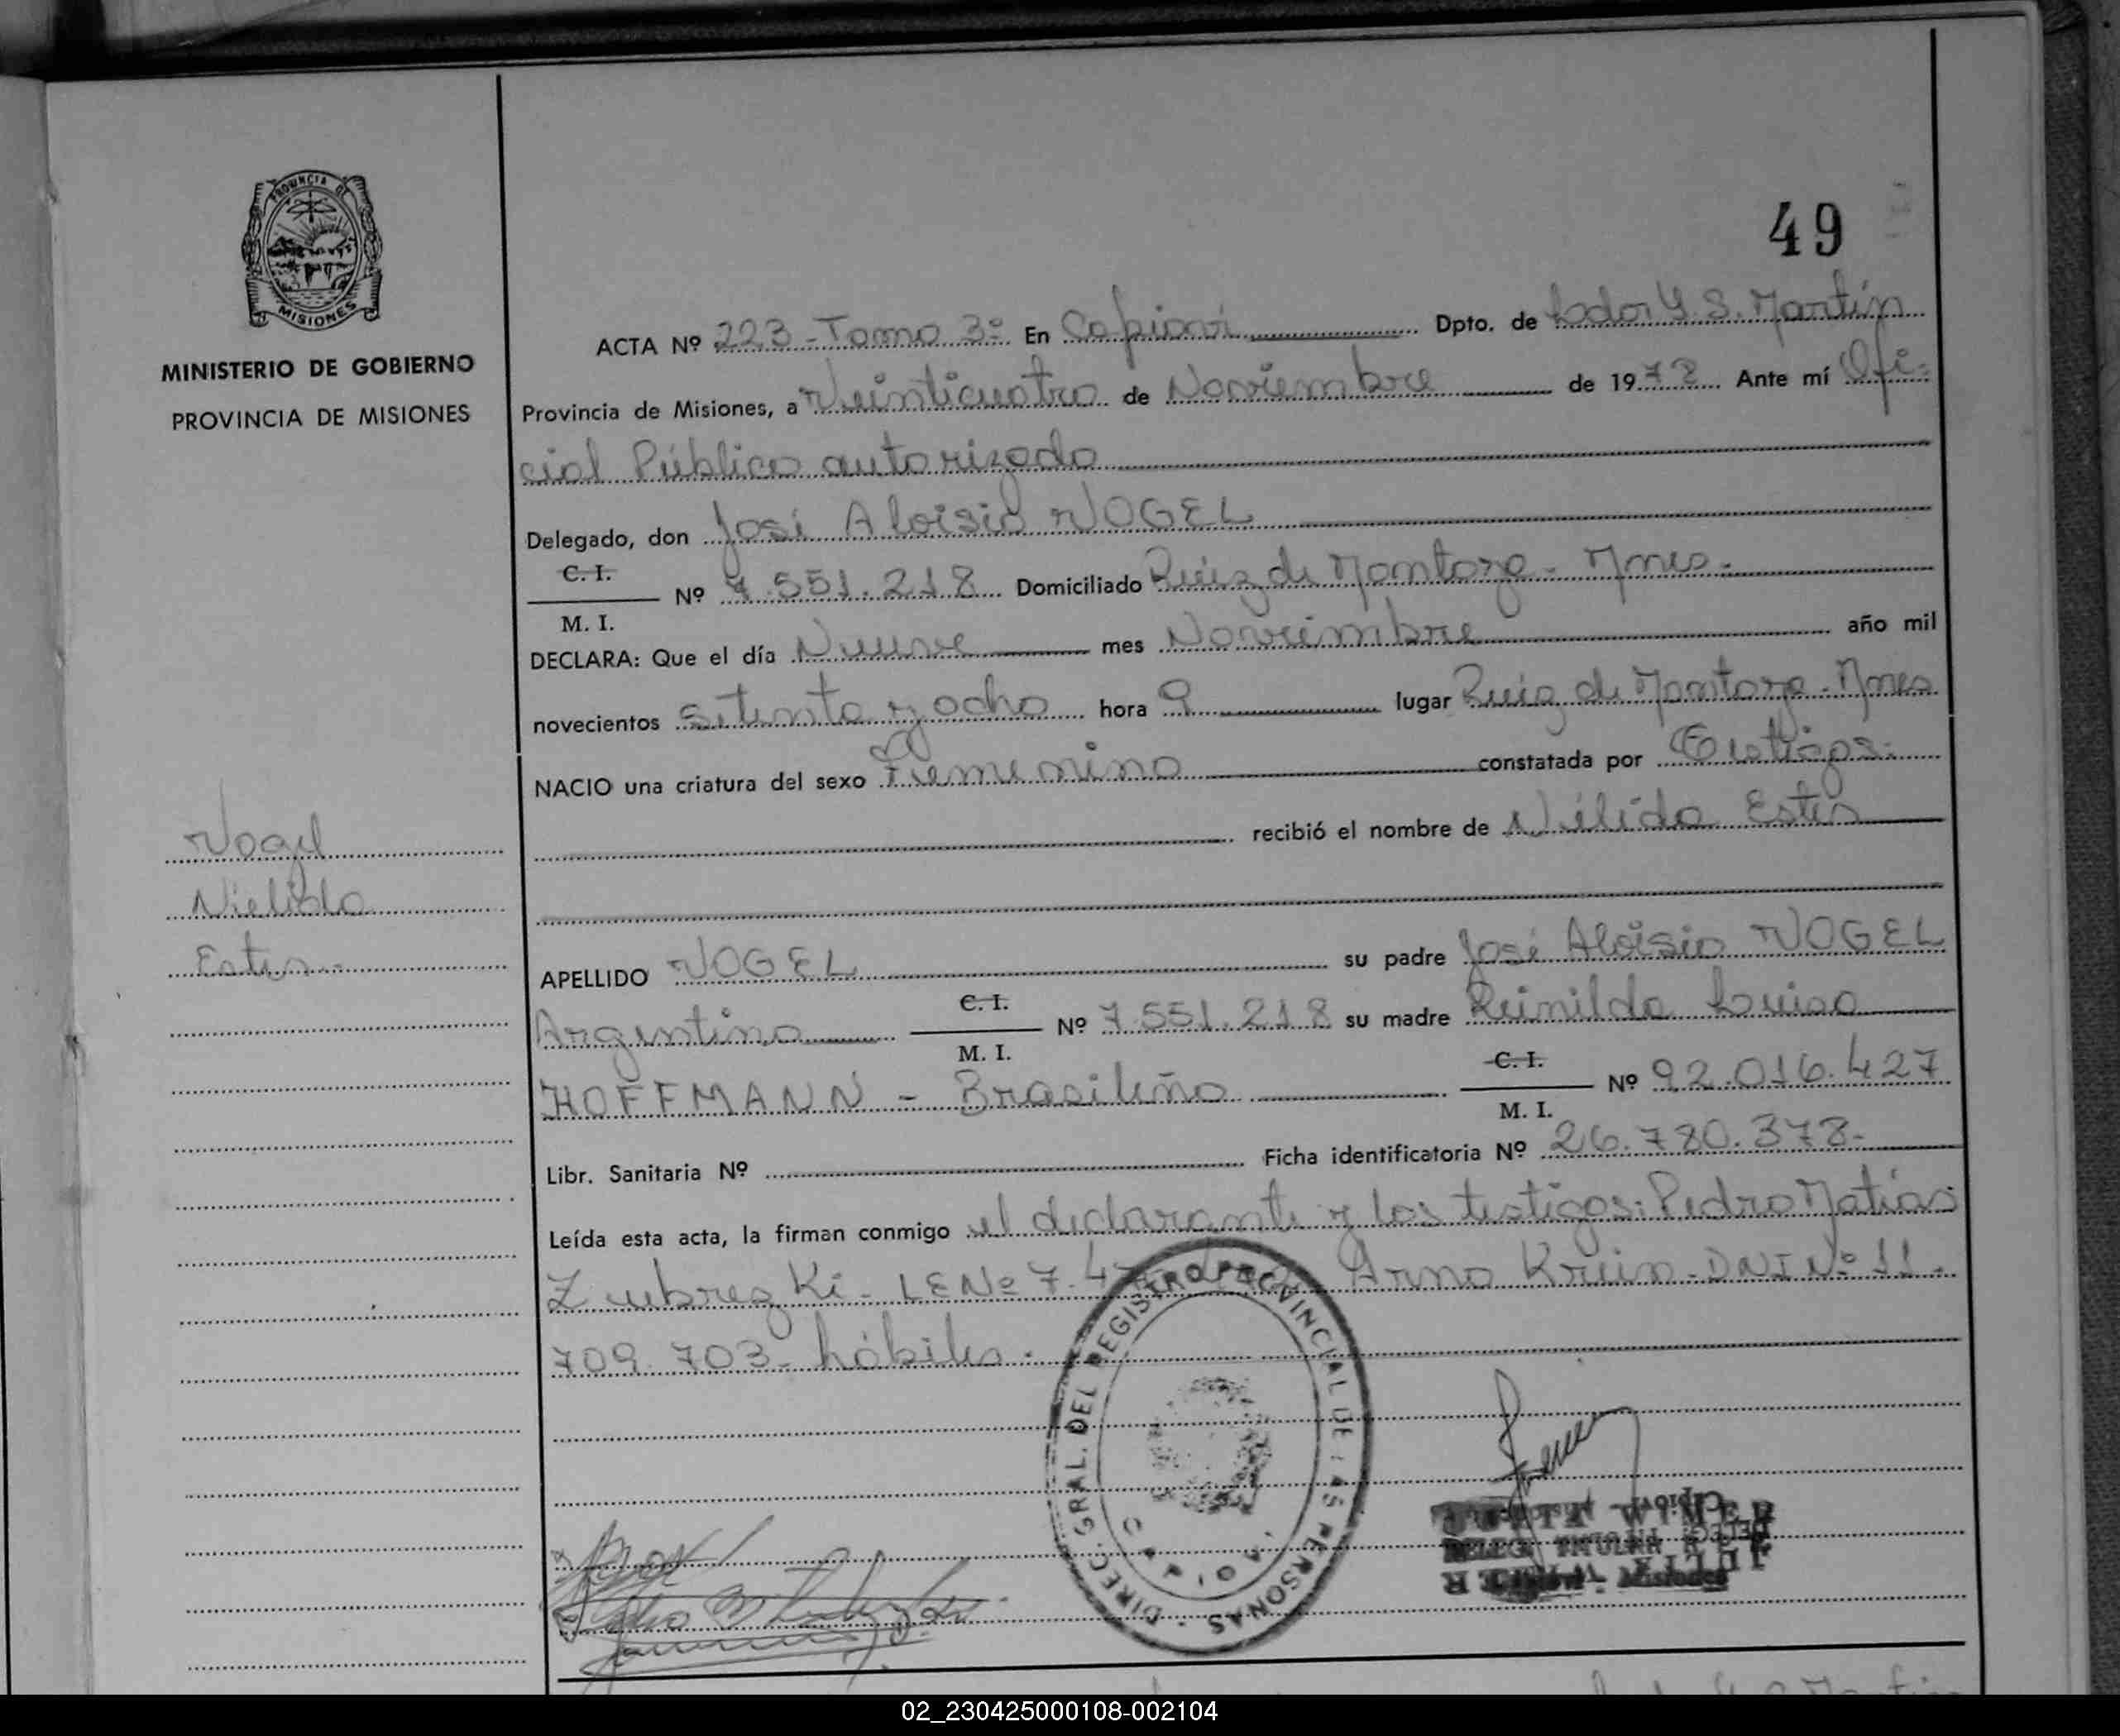 49
PROVINCIA DE
MISIONES
MINISTERIO DE GOBIERNO
PROVINCIA DE MISIONES
ACTA Nº 223 - Tomo 3º En Capioví Dpto. de Ldor G. S. Martín
Provincia de Misiones, a Veinticuatro de Noviembre de 1978 Ante mí Ofi-
cial Público autorizado
Delegado, don José Aloisio VOGEL
C. I.
Nº 7.551.218 Domiciliado Ruiz de Montoya - Mnes.
M. I.
DECLARA: Que el día Nueve mes Noviembre año mil
novecientos Setenta y ocho hora 9 lugar Ruiz de Montoya - Mnes
NACIO una criatura del sexo Femenino constatada por Testigos.
recibió el nombre de Nélida Ester
Vogel
Nélida
Ester.
APELLIDO VOGEL su padre José Aloisio VOGEL
Argentino C. I. Nº 7.551.218 su madre Reinilda Luisa
M. I.
HOFFMANN - Brasileña C. I. Nº 92.016.427
M. I.
Libr. Sanitaria Nº Ficha identificatoria Nº 26.780.378.
Leída esta acta, la firman conmigo el declarante y los testigos: Pedro Matías
Zubrezki - LE Nº 7.4 Arno Krein - DNI Nº 11.
709.703 - hábiles.
DIREC. GRAL. DEL REGISTRO PROVINCIAL DE LAS PERSONAS
02_230425000108-002104